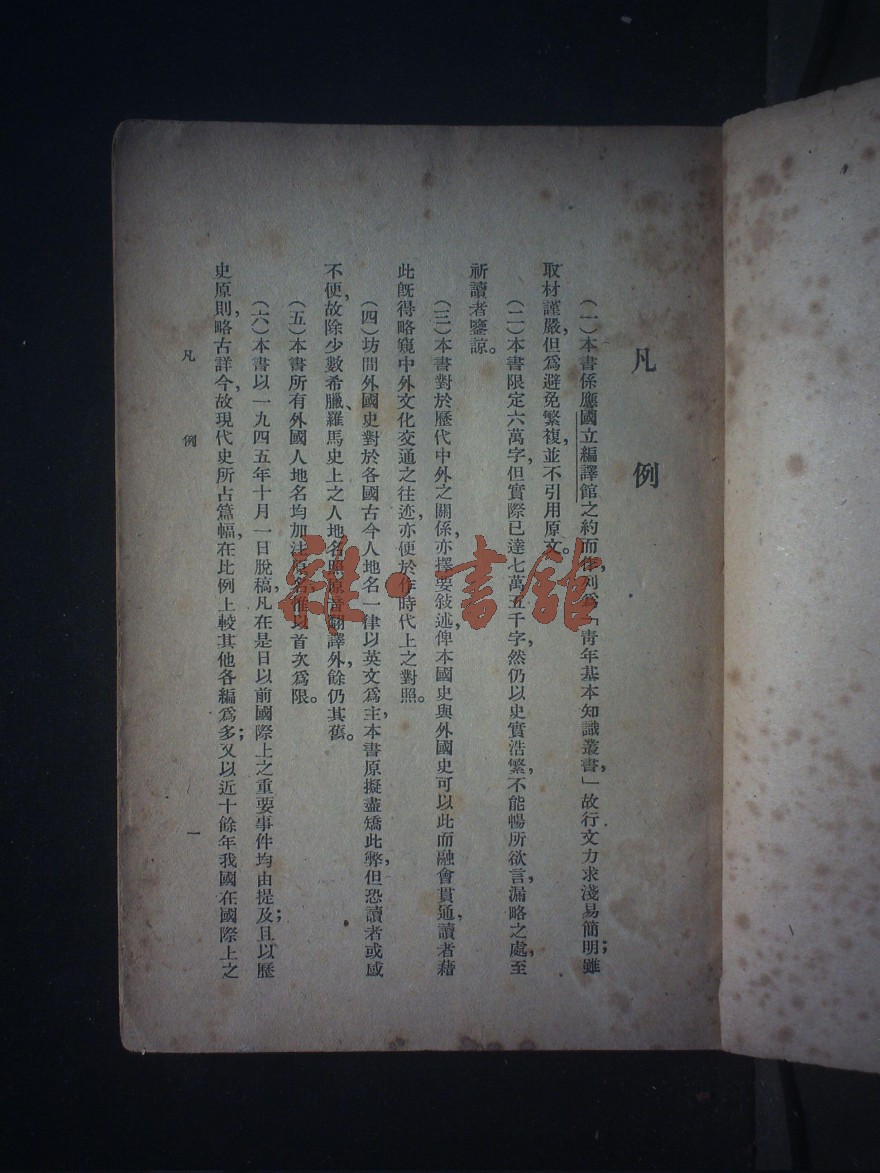 凡例
（一）本書係應國立編譯館之約而作，列爲「青年基本知識叢書，」故行文力求淺易簡明；雖
取材謹嚴，但爲避免繁複，並不引用原文。
（二）本書限定六萬字，但實際已達七萬五千字，然仍以史實浩繁，不能暢所欲言，漏略之處，至
祈讀者鑒諒。
（三）本書對於歷代中外之關係，亦擇要敍述，俾本國史與外國史可以此而融會貫通，讀者藉
此旣得略窺中外文化交通之往迹，亦便於作時代上之對照。
（四）坊間外國史對於各國古今人地名，一律以英文爲主，本書原擬盡矯此弊，但恐讀者或感
不便，故除少數希臘、羅馬史上之人地名照原音翻譯外，餘仍其舊。
（五）本書所有外國人地名均加注原名，惟以首次爲限。
（六）本書以一九四五年十月一日脫稿，凡在是日以前國際上之重要事件均由提及；且以歷
史原則，略古詳今，故現代史所占篇幅，在比例上較其他各編爲多；又以近十餘年我國在國際上之
凡例
一
雜·書館